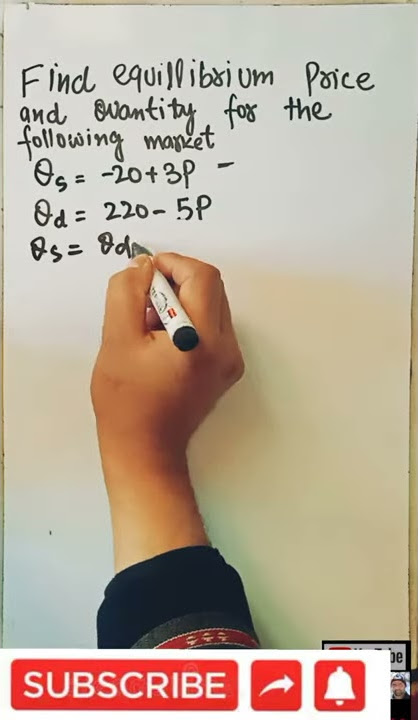 Find equillibrium Price
and Quantity for the
following market
Qs = -20+3P -
Qd = 220 - 5P
Qs = Qd
SUBSCRIBE